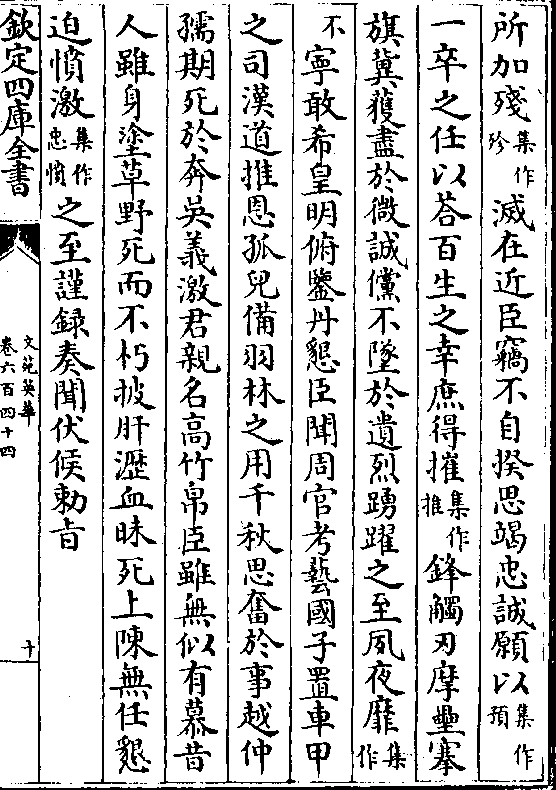 所加殘集作殄滅在近臣竊不自揆思竭忠誠願以集作預
一卒之任以荅百生之幸庶得摧集作推鋒觸刃摩壘搴
旗冀蒦盡於微誠儻不墜於遺烈踴躍之至夙夜靡集作
不寧敢希皇明俯鑒丹懇臣聞周官考藝國子置車甲
之司漢道推恩孤兒備羽林之用千秋思奮於事越仲
孺期死於奔吳義激君親名高竹帛臣雖無似以有慕昔
人雖身塗草野死而不朽披肝瀝血昧死上陳無任懇
迫憤激集作忠憤之至謹録奏聞伏候勅旨
欽定四庫全書
文苑英華
卷六百四十四
十